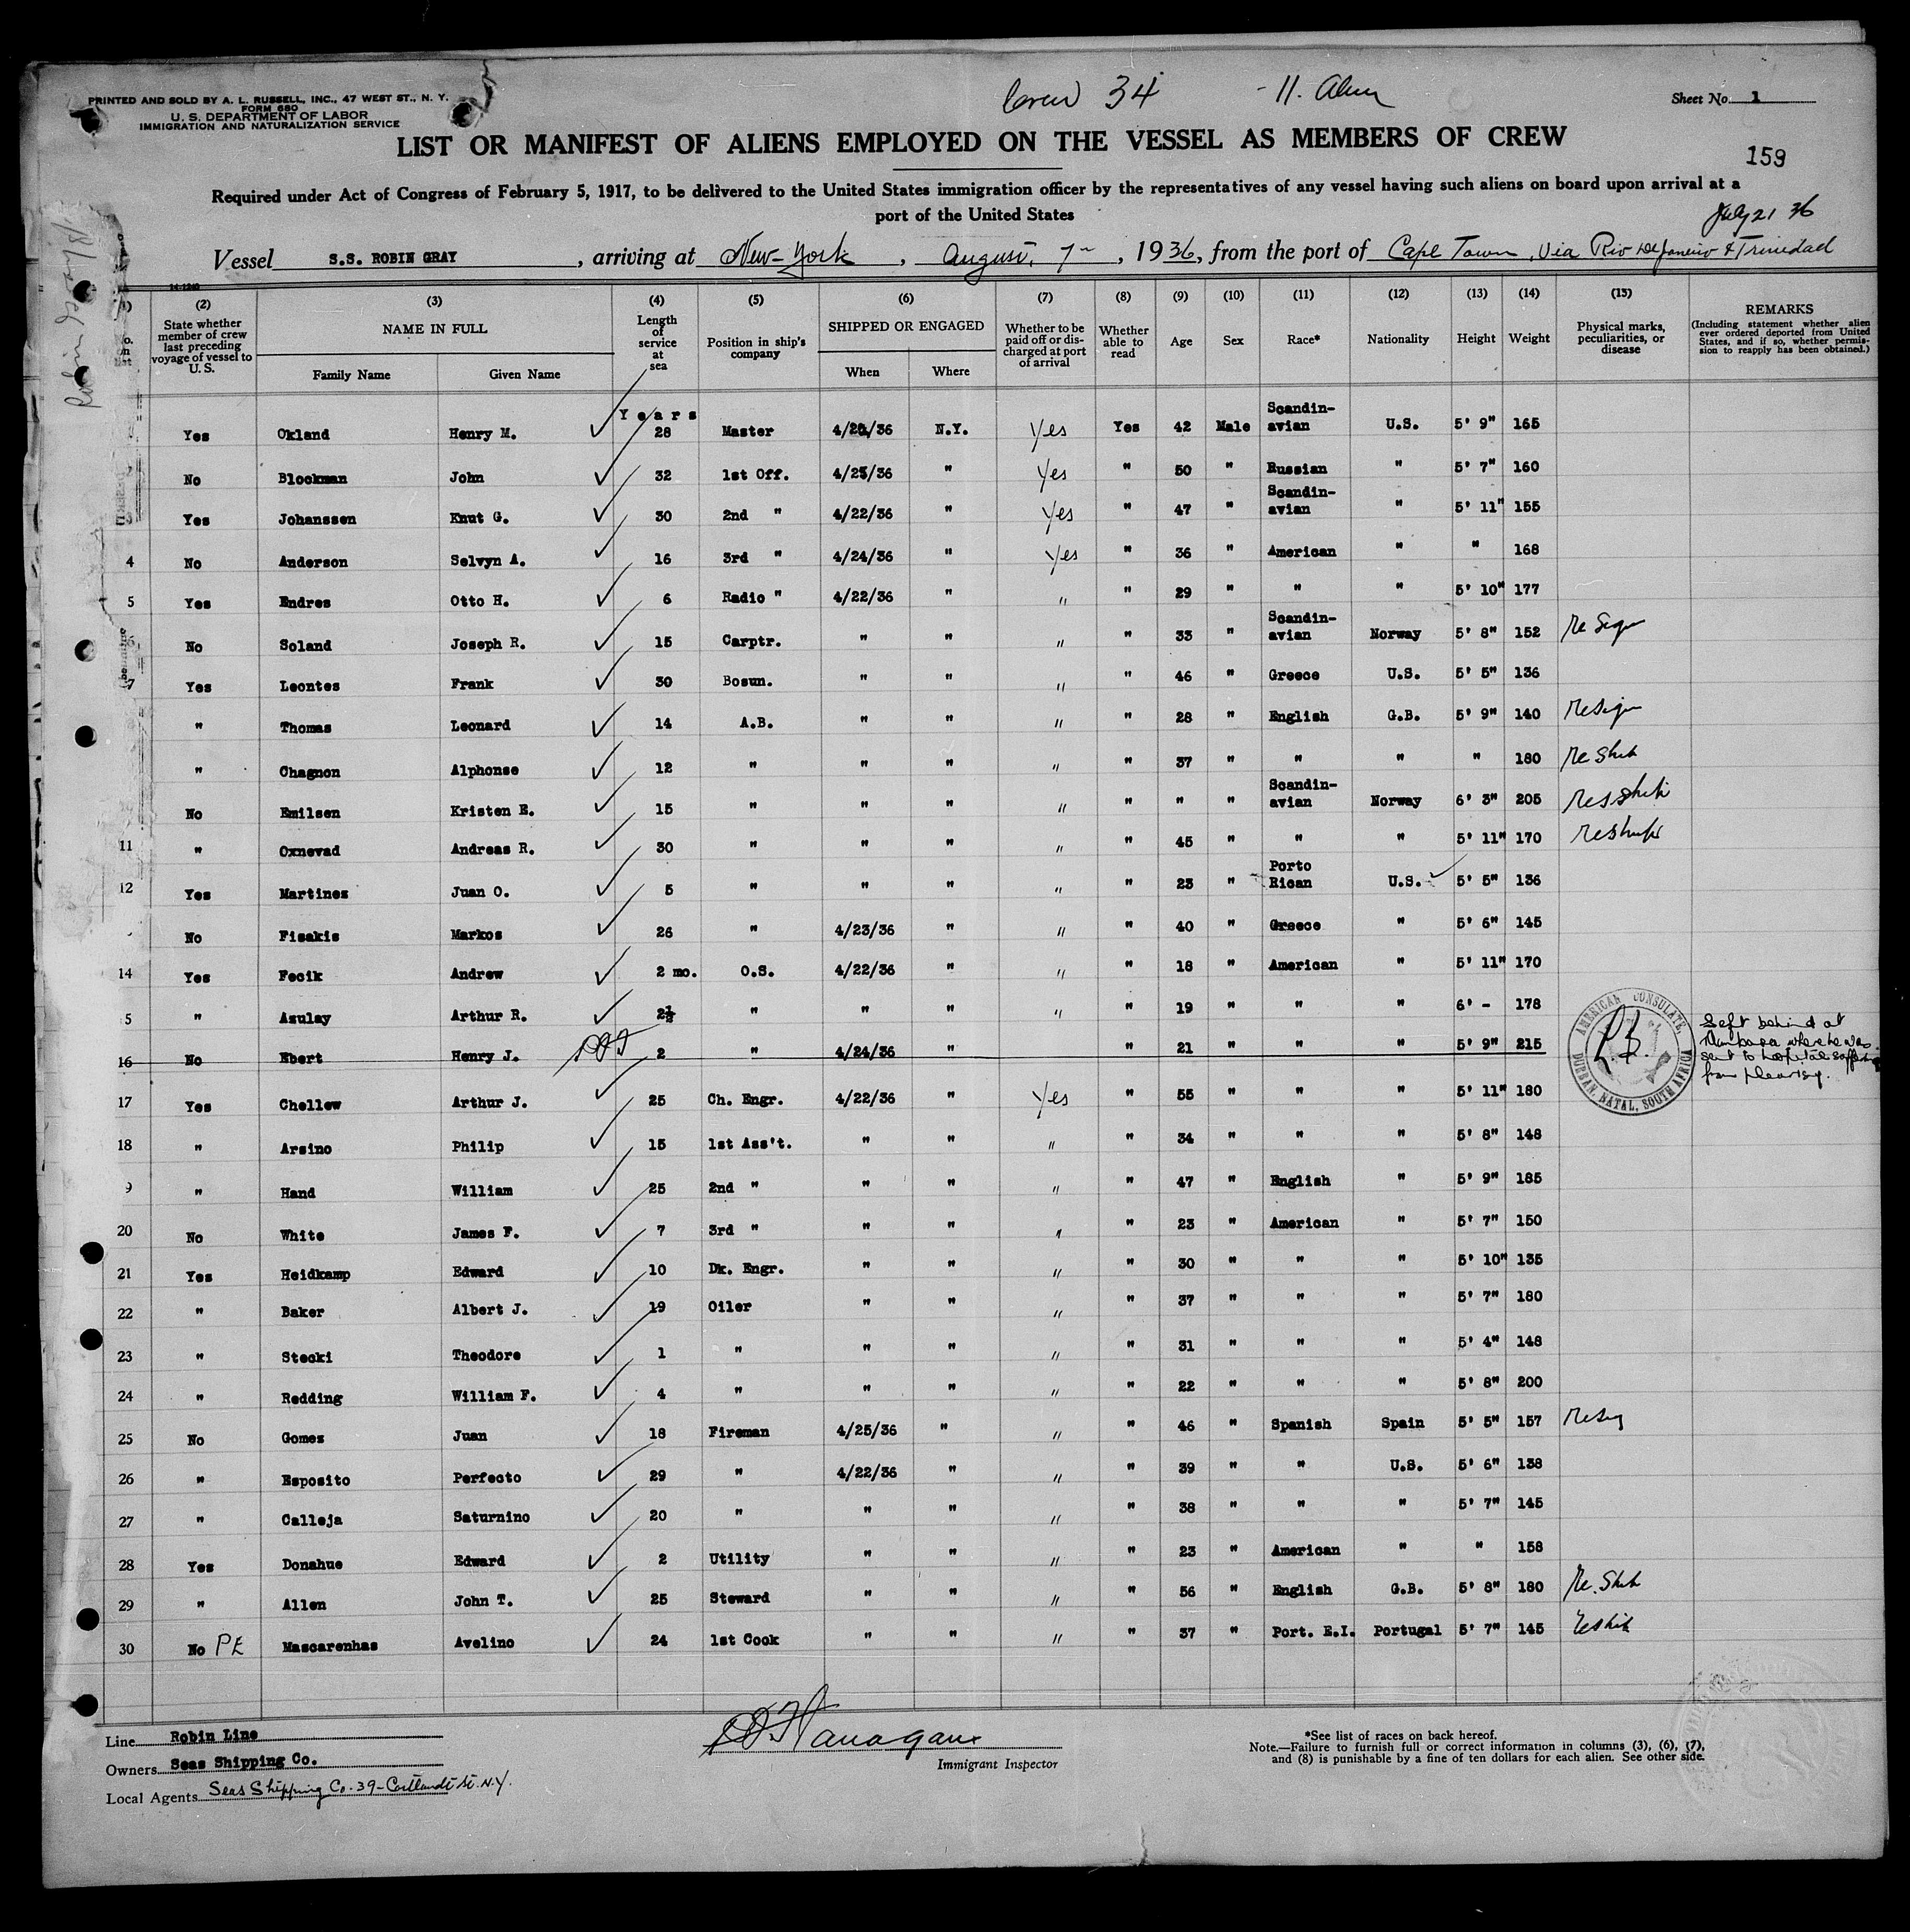 PRINTED AND SOLD BY A. L. RUSSELL, INC., 47 WEST ST., N. Y.
FORM 680
U. S. DEPARTMENT OF LABOR
IMMIGRATION AND NATURALIZATION SERVICE
Crew 34 - 11. Alien
Sheet No. 1
LIST OR MANIFEST OF ALIENS EMPLOYED ON THE VESSEL AS MEMBERS OF CREW
159
Required under Act of Congress of February 5, 1917, to be delivered to the United States immigration officer by the representatives of any vessel having such aliens on board upon arrival at a
port of the United States
July 21 36
Vessel S.S. ROBIN GRAY, arriving at New-York, August, 7, 1936, from the port of Cape Town, Via Rio De Janeiro & Trinedad
14-1240
(2) (3) (4) (5) (6) (7) (8) (9) (10) (11) (12) (13) (14) (15)
State whether member of crew last preceding voyage of vessel to U. S. NAME IN FULL Family Name Given Name Length of service at sea Position in ship's company SHIPPED OR ENGAGED When Where Whether to be paid off or discharged at port of arrival Whether able to read Age Sex Race* Nationality Height Weight Physical marks, peculiarities, or disease REMARKS (Including statement whether alien ever ordered deported from United States, and if so, whether permission to reapply has been obtained.)
Years
Yes Okland Henry M. 28 Master 4/22/36 N.Y. Yes Yes 42 Male Scandin-avian U.S. 5' 9" 165
No Blockman John 32 1st Off. 4/25/36 " Yes " 50 " Russian " 5' 7" 160
3 Yes Johanssen Knut G. 30 2nd " 4/22/36 " Yes " 47 " Scandin-avian " 5' 11" 155
4 No Anderson Selvyn A. 16 3rd " 4/24/36 " Yes " 36 " American " " 168
5 Yes Endres Otto H. 6 Radio " 4/22/36 " " " 29 " " " 5' 10" 177
No Soland Joseph R. 15 Carptr. " " " " 33 " Scandin-avian Norway 5' 8" 152 Resign
7 Yes Leontes Frank 30 Bosun. " " " " 46 " Greece U.S. 5' 5" 136
" Thomas Leonard 14 A.B. " " " " 28 " English G.B. 5' 9" 140 Resign
" Chagnon Alphonse 12 " " " " " 37 " " " " 180 Reship
No Emilsen Kristen E. 15 " " " " " " " Scandin-avian Norway 6' 3" 205 Reship
11 " Oxnevad Andreas R. 30 " " " " " 45 " " " 5' 11" 170 Reship
12 Yes Martinez Juan O. 5 " " " " " 23 " Porto Rican U.S. 5' 5" 136
No Fisakis Markos 26 " 4/23/36 " " " 40 " Greece " 5' 6" 145
14 Yes Fecik Andrew 2 mo. O.S. 4/22/36 " " " 18 " American " 5' 11" 170
5 " Azulay Arthur R. " " " " " 19 " " " 6' - 178
16 No Ebert Henry J. 2 " 4/24/36 " " 21 " " " 5' 9" 215 Left behind at Mombasa where he was sent to hospital suffering from pleurisy.
AMERICAN CONSULATE, DURBAN, NATAL, SOUTH AFRICA
17 Yes Chellew Arthur J. 25 Ch. Engr. 4/22/36 " Yes " 55 " " " 5' 11" 180
18 " Arsino Philip 15 1st Ass't. " " " " 34 " " " 5' 8" 148
9 " Hand William 25 2nd " " " " " 47 " English " 5' 9" 185
20 No White James F. 7 3rd " " " " " 23 " American " 5' 7" 150
21 Yes Heidkamp Edward 10 Dk. Engr. " " " " 30 " " " 5' 10" 135
22 " Baker Albert J. 19 Oiler " " " " 37 " " " 5' 7" 180
23 " Stecki Theodore 1 " " " " " 31 " " " 5' 4" 148
24 " Redding William F. 4 " " " " " 22 " " " 5' 8" 200
25 No Gomez Juan 18 Fireman 4/25/36 " " " 46 " Spanish Spain 5' 5" 157 Resig
26 " Esposito Perfecto 29 " 4/22/36 " " " 39 " " U.S. 5' 6" 138
27 " Calleja Saturnino 20 " " " " " 38 " " " 5' 7" 145
28 Yes Donahue Edward 2 Utility " " " " 23 " American " " 158
29 " Allen John T. 25 Steward " " " " 56 " English G.B. 5' 8" 180 Re. Ship
30 No PE Mascarenhas Avelino 24 1st Cook " " " " 37 " Port. E.I. Portugal 5' 7" 145 Reship
Line Robin Line
Owners Seas Shipping Co.
Local Agents Seas Shipping Co. 39-Cortlandt St. N.Y.
Flanagan
Immigrant Inspector
*See list of races on back hereof.
Note.—Failure to furnish full or correct information in columns (3), (6), (7),
and (8) is punishable by a fine of ten dollars for each alien. See other side.